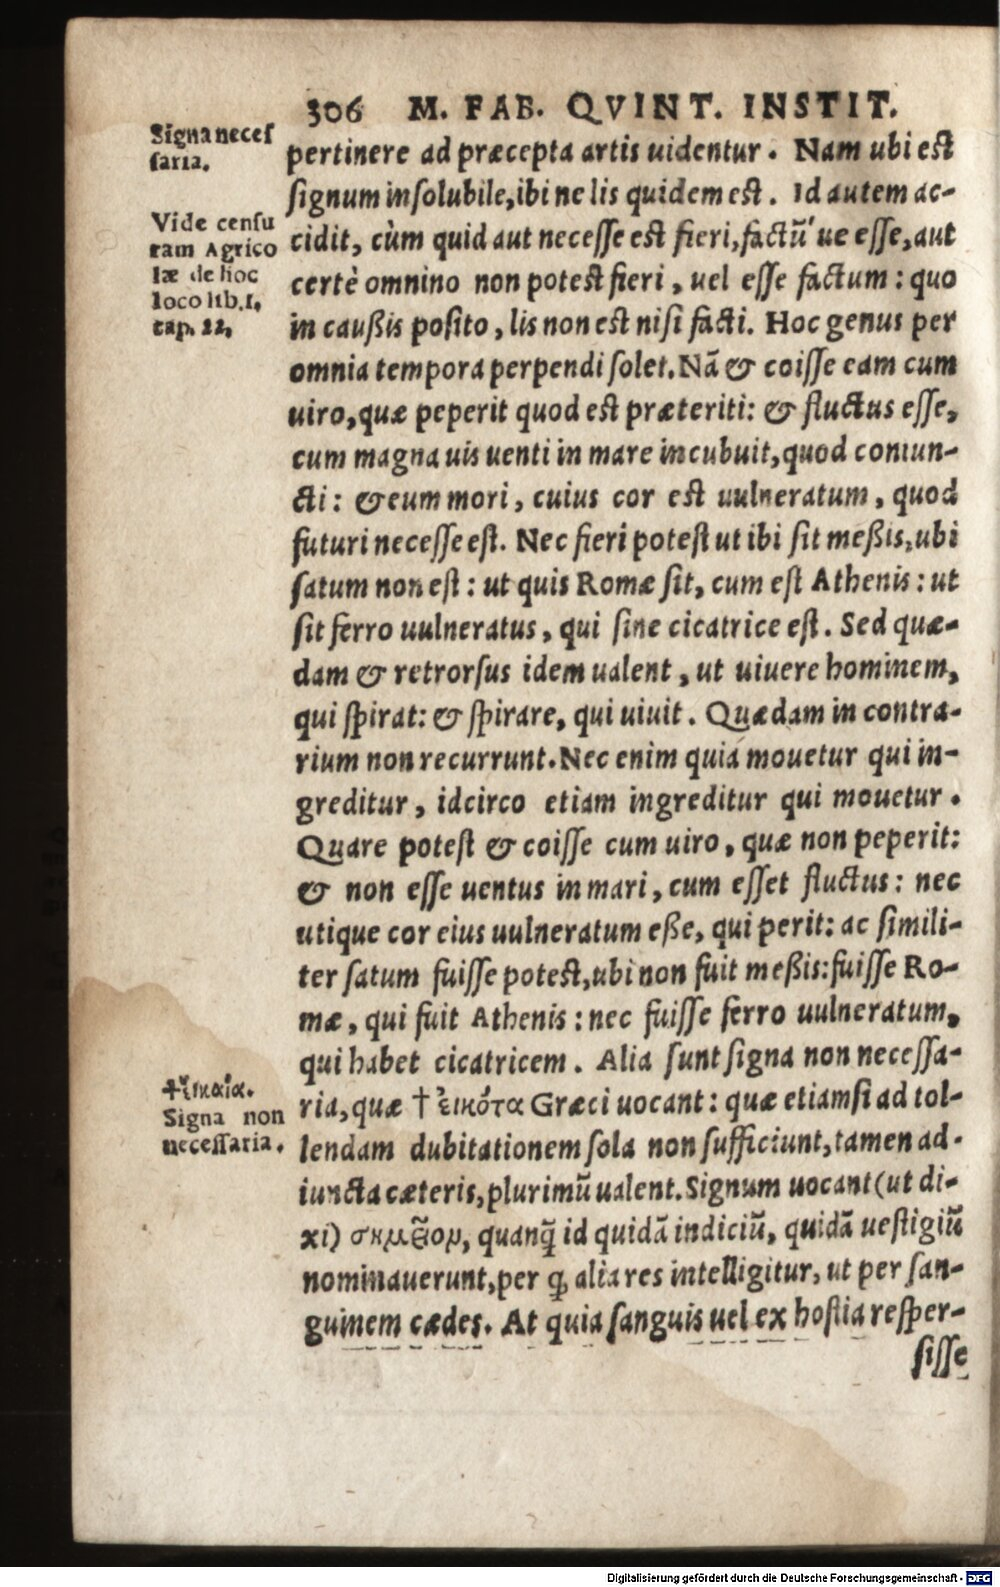 306 M. FAB. QVINT. INSTIT.
Signa neces
saria.
Vide censu
ram Agrico
læ de hoc
loco lib.1,
cap. 22,
pertinere ad præcepta artis uidentur. Nam ubi est
signum insolubile, ibi ne lis quidem est. Id autem ac-
cidit, cùm quid aut necesse est fieri, factũ ue esse, aut
certè omnino non potest fieri, uel esse factum: quo
in caußis posito, lis non est nisi facti. Hoc genus per
omnia tempora perpendi solet. Nã & coisse eam cum
uiro, quæ peperit quod est præteriti: & fluctus esse,
cum magna uis uenti in mare incubuit, quod coniun-
cti: & eum mori, cuius cor est uulneratum, quod
futuri necesse est. Nec fieri potest ut ibi sit meßis, ubi
satum non est: ut quis Romæ sit, cum est Athenis: ut
sit ferro uulneratus, qui sine cicatrice est. Sed quæ-
dam & retrorsus idem ualent, ut uiuere hominem,
qui spirat: & spirare, qui uiuit. Quædam in contra-
rium non recurrunt. Nec enim quia mouetur qui in-
greditur, idcirco etiam ingreditur qui mouetur.
Quare potest & coisse cum uiro, quæ non peperit:
& non esse uentus in mari, cum esset fluctus: nec
utique cor eius uulneratum eße, qui perit: ac simili-
ter satum fuisse potest, ubi non fuit meßis: fuisse Ro-
mæ, qui fuit Athenis: nec fuisse ferro uulneratum,
qui habet cicatricem. Alia sunt signa non necessa-
ria, quæ † ἐικότα Græci uocant: quæ etiamsi ad tol-
lendam dubitationem sola non sufficiunt, tamen ad-
iuncta cæteris, plurimũ ualent. Signum uocant (ut di-
xi) σημεῖον, quanq̃ id quidã indiciũ, quidã uestigiũ
nominauerunt, per q̃ alia res intelligitur, ut per san-
guinem cædes. At quia sanguis uel ex hostia resper-
sisse
Signa non
necessaria.
Digitalisierung gefördert durch die Deutsche Forschungsgemeinschaft - DFG